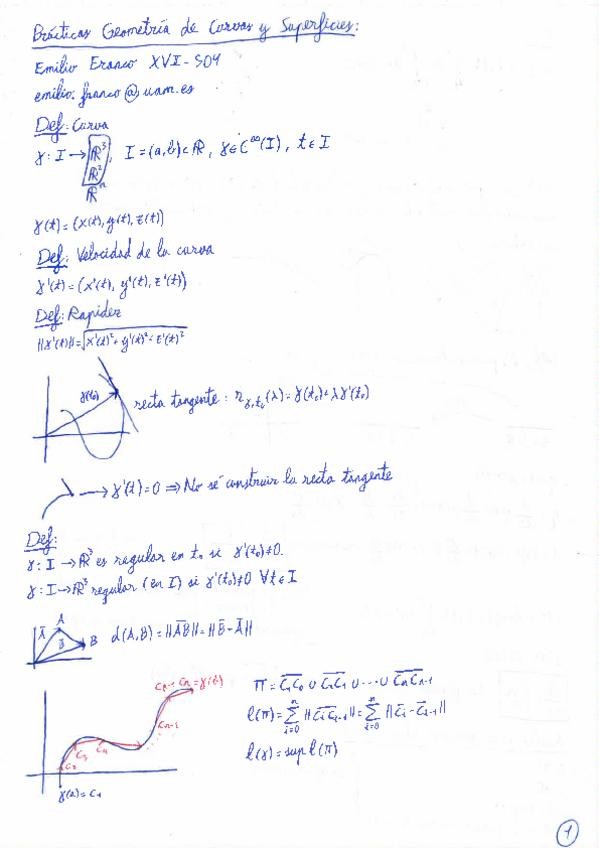 Prácticas Geometría de Curvas y Superficies:
Emilio Franco XVI-504
emilio.franco@uam.es
Def: Curva
γ: I → ℝ³, I=(a,b)⊂ℝ, γ∈C^∞(I), t∈I
ℝ²
ℝⁿ
γ(t)=(x(t),y(t),z(t))
Def: Velocidad de la curva
γ'(t)=(x'(t), y'(t), z'(t))
Def: Rapidez
||γ'(t)||=√x'(t)²+y'(t)²+z'(t)²
γ(t₀)
recta tangente: r_γ,t₀(λ)=γ(t₀)+λγ'(t₀)
→ γ'(t)=0 ⇒ No sé construir la recta tangente
Def:
γ: I → ℝ³ es regular en t₀ si γ'(t₀)≠0.
γ: I → ℝ³ regular (en I) si γ'(t₀)≠0 ∀t∈I
A
B
d(A,B)=||AB||=||B-A||
Cn-1 Cn=γ(t)
Cn-2
γ(a)=C₁
l(π)=Σ ||Ci Ci-1||=Σ ||Ci-Ci-1||
l(γ)=sup l(π)
1